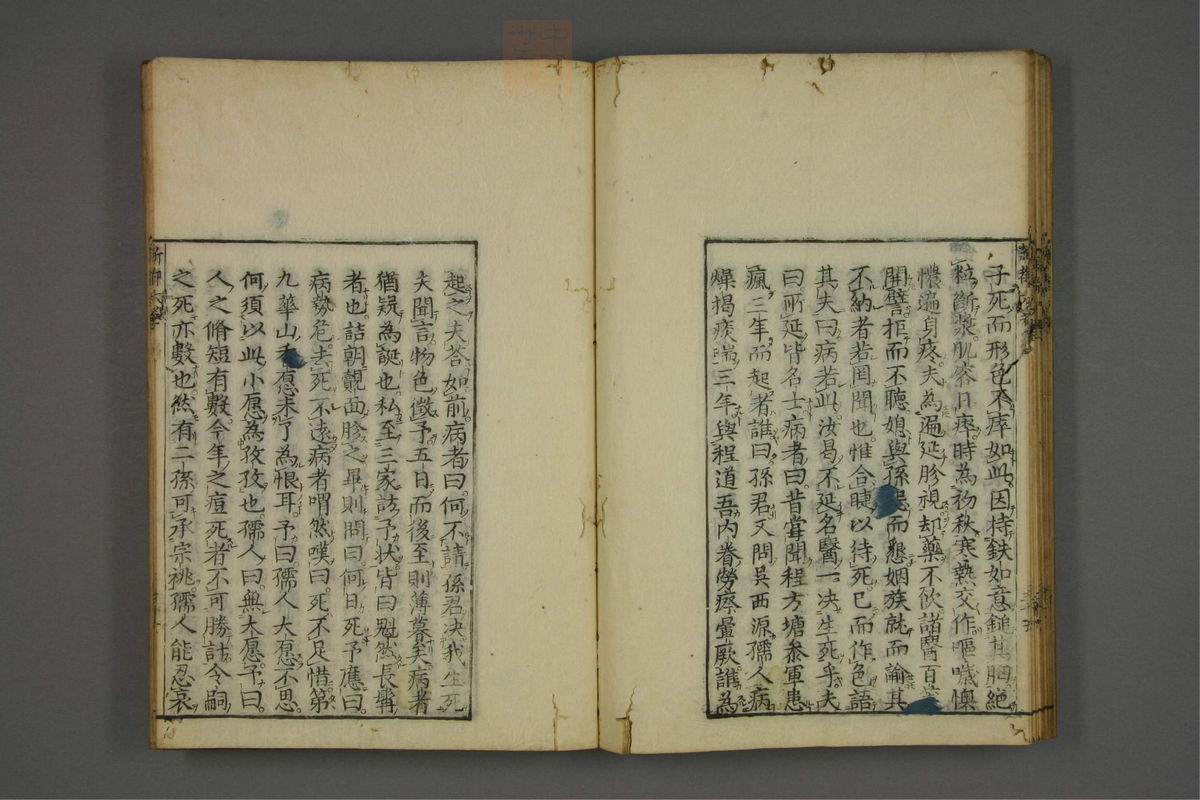 子死而形色不瘁如此因持鉄如意鎚其胸絶
粒断漿肌瘵日瘁時為初秋寒熱交作嘔噦懊
憹遍身疼夫為遍延胗視却藥不飲諸醫百
開譬拒而不聽媳與孫跽而懇姻族就而諭其
不納者若罔聞也惟合睫以待死已而作色語
其夫曰病若此汝曷不延名醫一决生死乎夫
曰所延皆名士病者曰昔甞聞程方塘叅軍患
瘋三年而起者誰曰孫君又問吳西源孺人病
燥揭痰喘三年與程道吾内眷勞瘵暈厥誰為
起之夫荅如前病者曰何不請孫君决我生死
夫聞言物色徵予五日而後至則薄暮矣病者
猶疑為誕也私至三家訪予状皆曰魁然長髯
者也詰朝覿面胗之畢則問曰何日死予應曰
病勢危去死不遠病者喟然嘆曰死不足惜第
九華山香愿未了為恨耳予曰孺人大愿不思
何須以此小愿為孜孜也孺人曰無大愿予曰
人之脩短有數今年之痘死者不可勝計令嗣
之死亦數也然有二孫可承宗祧孺人能忍哀